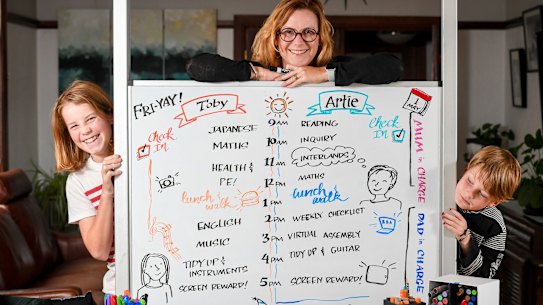 FRI-YAY!
Toby
Artie
1 MAY
check IN
9AM
READING
check IN
JAPANESE
10AM
INQUIRY
MATHS
11AM
INTERLANDS
HEALTH & PE!
12PM
MATHS
lunch & walk
1PM
lunch & walk
ENGLISH
2PM
WEEKLY CHECKLIST
MUSIC
3PM
VIRTUAL ASSEMBLY
TIDY UP & INSTRUMENTS
4PM
TIDY UP & GUITAR
SCREEN REWARD!
5PM
SCREEN REWARD!
MUM in CHARGE
DAD in CHARGE